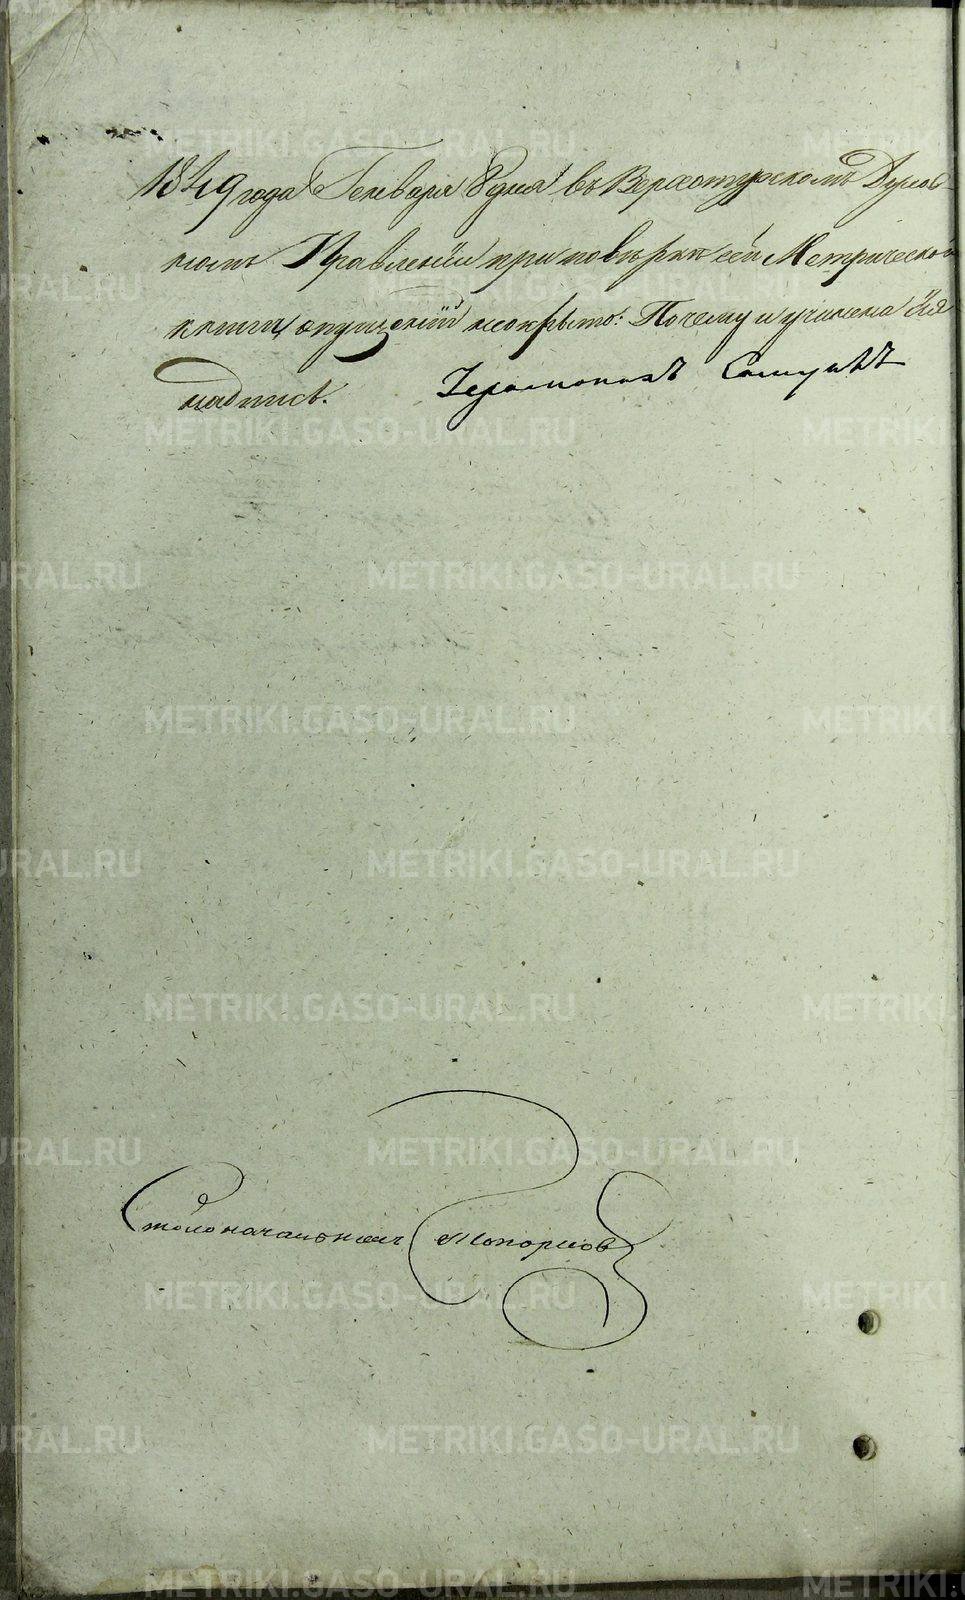 1849 года Генваря 8 дня въ Верхотурскомъ Духов-
номъ Правленіи при повѣркѣ сей Метрической
книги опущеній неокрыто: Почему и учинена сія
надпись. Іеромонахъ Самуилъ
Столоначальникъ Топорков
METRIKI.GASO-URAL.RU